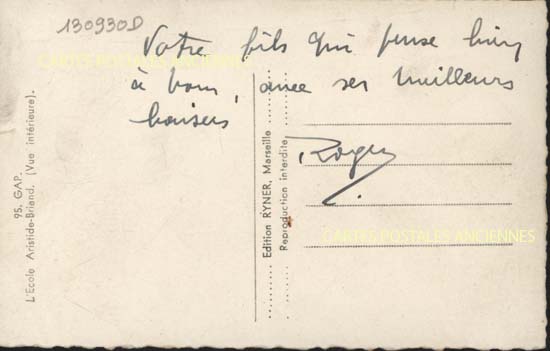 130930D
Votre fils qui pense bien
à vous, avec ses meilleurs
baisers
Roger
CARTES POSTALES ANCIENNES
CARTES POSTALES ANCIENNES
95. GAP.
L'Ecole Aristide-Briand. (Vue intérieure).
Edition RYNER, Marseille
Reproduction interdite